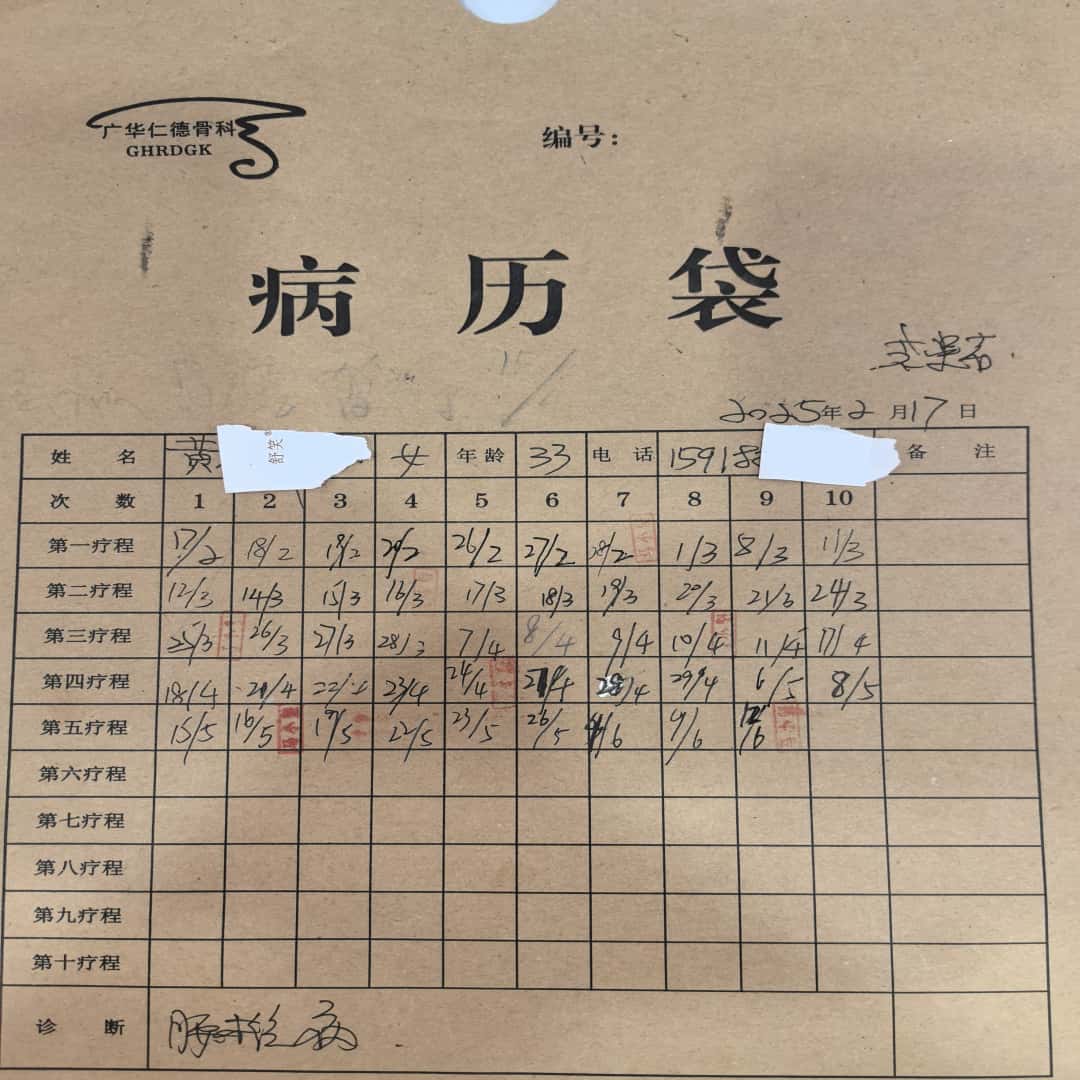 广华仁德骨科
GHRDGK
编号：
病历袋
2025年2月17日
姓名 黄 舒笑® 女 年龄 33 电话 15918 备注
次数 1 2 3 4 5 6 7 8 9 10
第一疗程 17/2 18/2 19/2 20/2 26/2 27/2 28/2 1/3 8/3 11/3
第二疗程 12/3 14/3 15/3 16/3 17/3 18/3 19/3 20/3 21/3 24/3
第三疗程 25/3 26/3 27/3 28/3 7/4 8/4 9/4 10/4 11/4 17/4
第四疗程 18/4 20/4 22/4 23/4 24/4 27/4 28/4 29/4 6/5 8/5
第五疗程 15/5 16/5 19/5 22/5 23/5 26/5 4/6 9/6 12/6
第六疗程
第七疗程
第八疗程
第九疗程
第十疗程
诊断 腰椎病